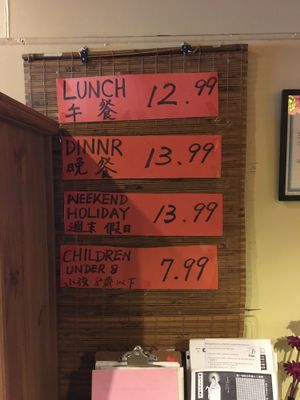 LUNCH 12.99
午餐
DINNR 13.99
晚餐
WEEKEND
HOLIDAY 13.99
週末 假日
CHILDREN
UNDER 8 7.99
小孩 8歲以下